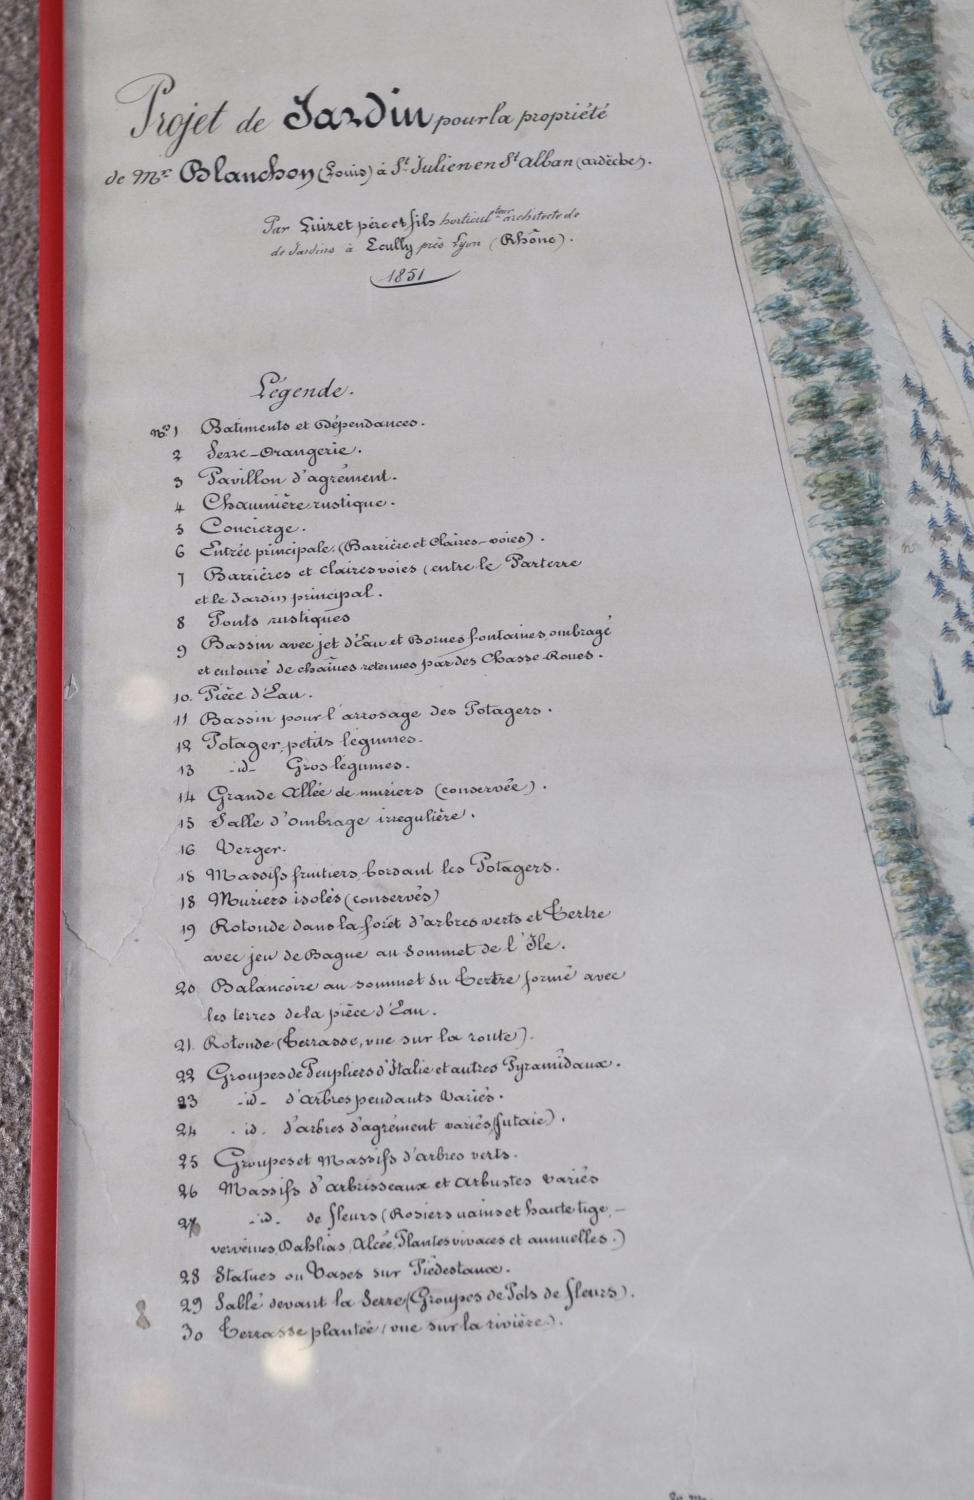 Projet de Jardin pour la propriété
de Mr. Blanchon (Louis) à St. Julien en St Alban (ardèche).
Par Luizet père et fils horticulteur architecte de
de Jardins à Ecully près Lyon (Rhône).
1851
Légende.
no. 1 Batiments et Dépendances.
2 Serre-Orangerie.
3 Pavillon d'agrément.
4 Chaumière rustique.
5 Concierge.
6 Entrée principale. (Barrière et Claires-voies).
7 Barrières et claires voies (entre le Parterre
et le Jardin principal.
8 Ponts rustiques
9 Bassin avec jet d'Eau et Bornes fontaines, ombragé
et entouré de chaînes retenues par des Chasse-Roues.
10. Pièce d'Eau.
11 Bassin pour l'arrosage des Potagers.
12 Potager, petits légumes.
13 -id- Gros légumes.
14 Grande Allée de muriers (conservée).
15 Salle d'ombrage irregulière.
16 Verger.
18 Massifs fruitiers, bordant les Potagers.
18 Muriers isolés (conservés)
19 Rotonde dans la forêt d'arbres verts et Tertre
avec jeu de Bague au Sommet de l'Île.
20 Balancoire au sommet du Tertre formé avec
les terres de la pièce d'Eau.
21. Rotonde (Terrasse, vue sur la route).
22 Groupes de Peupliers d'Italie et autres Pyramidaux.
23 -id- d'Arbres pendants Variés.
24 -id- d'arbres d'agrément variés (futaie).
25 Groupes et Massifs d'arbres verts.
26 Massifs d'Arbrisseaux et Arbustes variés
27 -id- de fleurs (Rosiers nains et haute tige, -
verveines, Dahlias, Alcée, Plantes vivaces et annuelles.)
28 Statues ou Vases sur Piédestaux.
29 Sablé devant la Serre (Groupes de Pots de fleurs).
30 Terrasse plantée (vue sur la rivière).